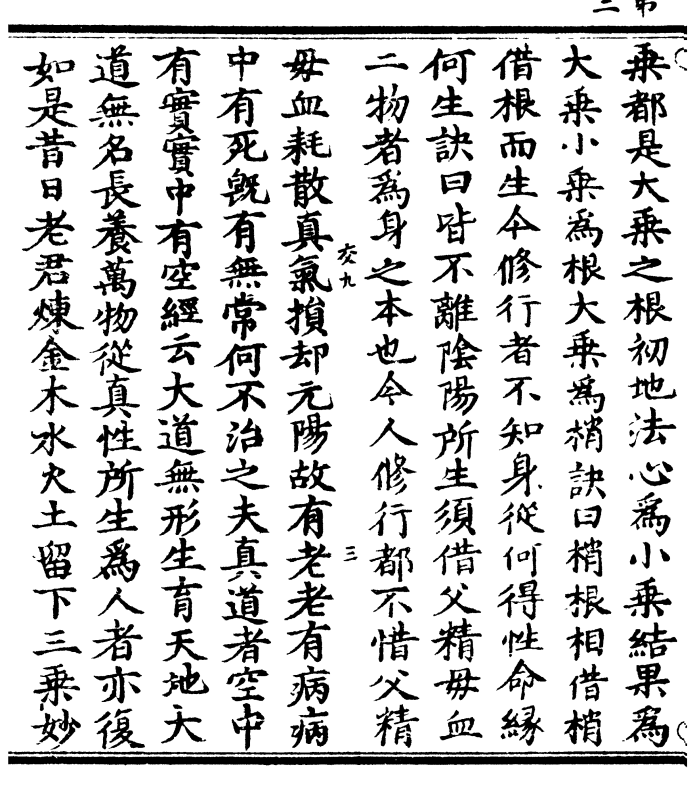 乗都是大乗之根初地法心爲小乗結果爲
大乗小乗爲根大乗爲梢訣曰梢根相借梢
借根而生今修行者不知身從何得性命緣
何生訣曰皆不離陰陽所生須借父精母血
二物者爲身之本也今人修行都不惜父精
交九 三
母血耗散真氣損却元陽故有老老有病病
中有死旣有無常何不治之夫真道者空中
有實實中有空經云大道無形生育天地大
道無名長養萬物從真性所生爲人者亦復
如是昔日老君煉金木水火土留下三乗妙